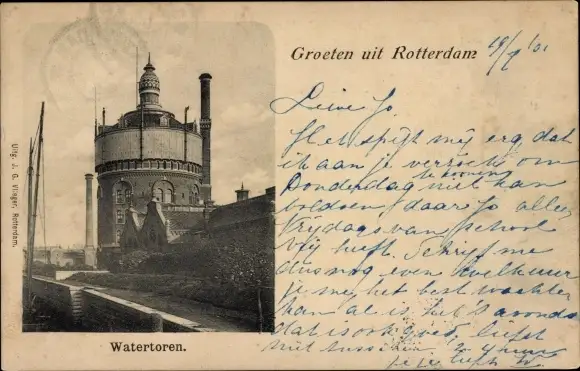 Groeten uit Rotterdam
19/9 '01
Lieve Jo.
Het spijt mij erg dat
ik aan je verzoek om
te komen
Donderdag niet kan
voldoen daar Jo alleen
Vrijdags van school
vrij heeft. Schrijf me
dus nog even hoe laat
je me het best wachten
kan al is het 's avonds
dat is ook goed, liefst
niet tusschen
Uitg. J. G. Vlieger, Rotterdam.
Watertoren.